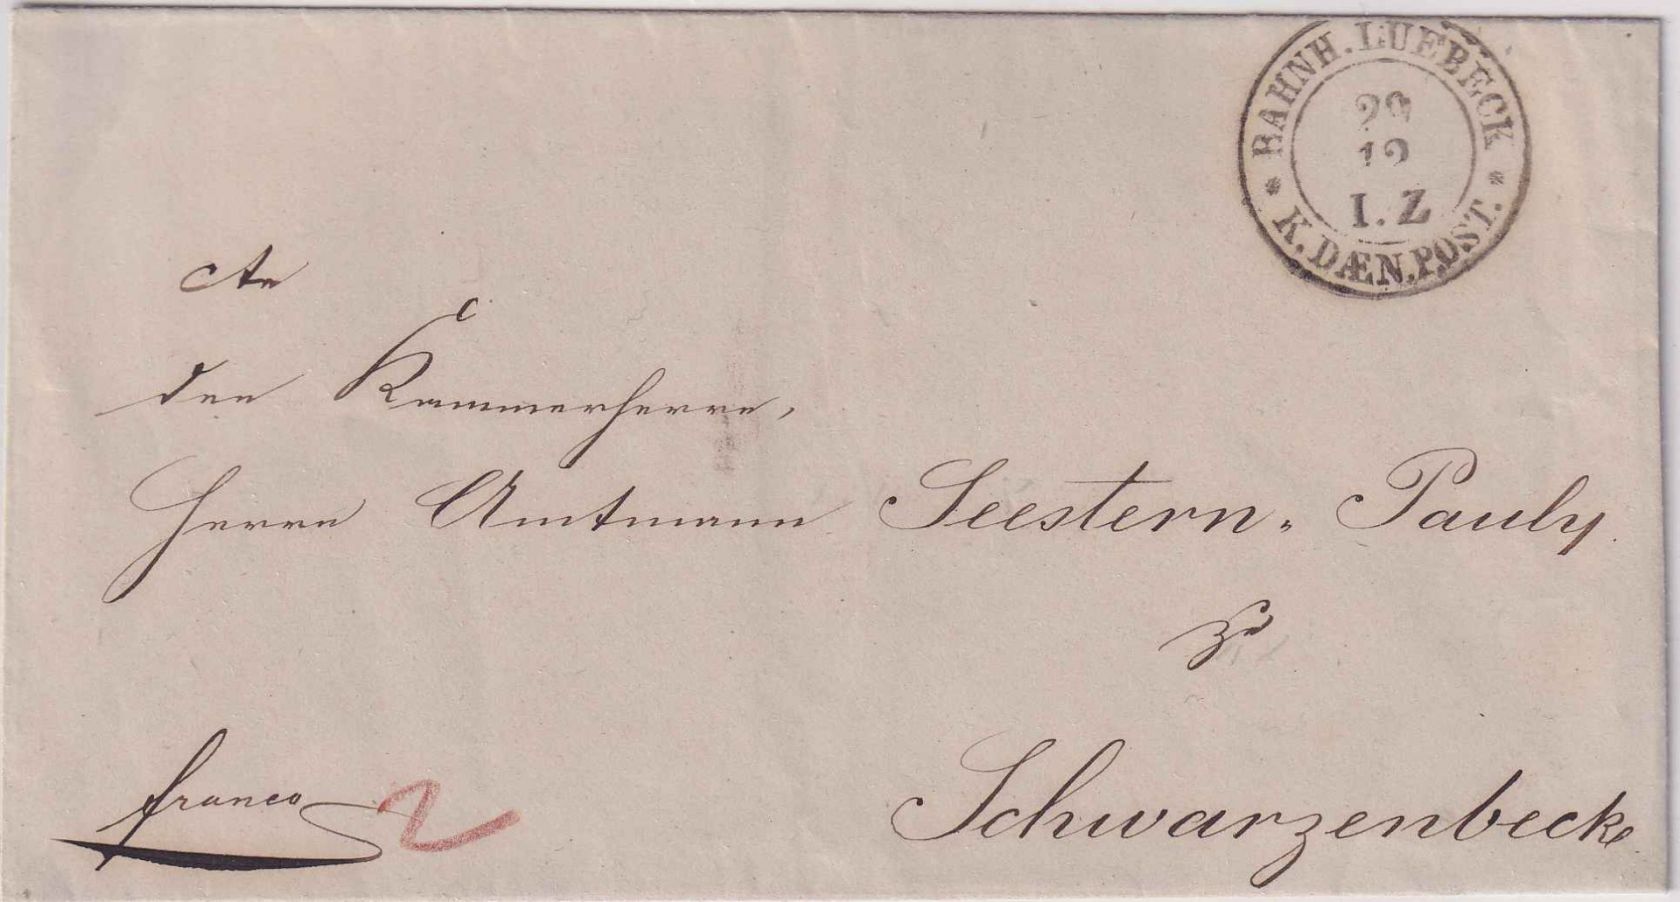 BAHNH. LUEBECK
29
12
I. Z
* K. DÆN. POST. *
An
den Kammerherrn,
Herrn Amtmann Seestern-Pauly
zu
Schwarzenbeck
franco 2